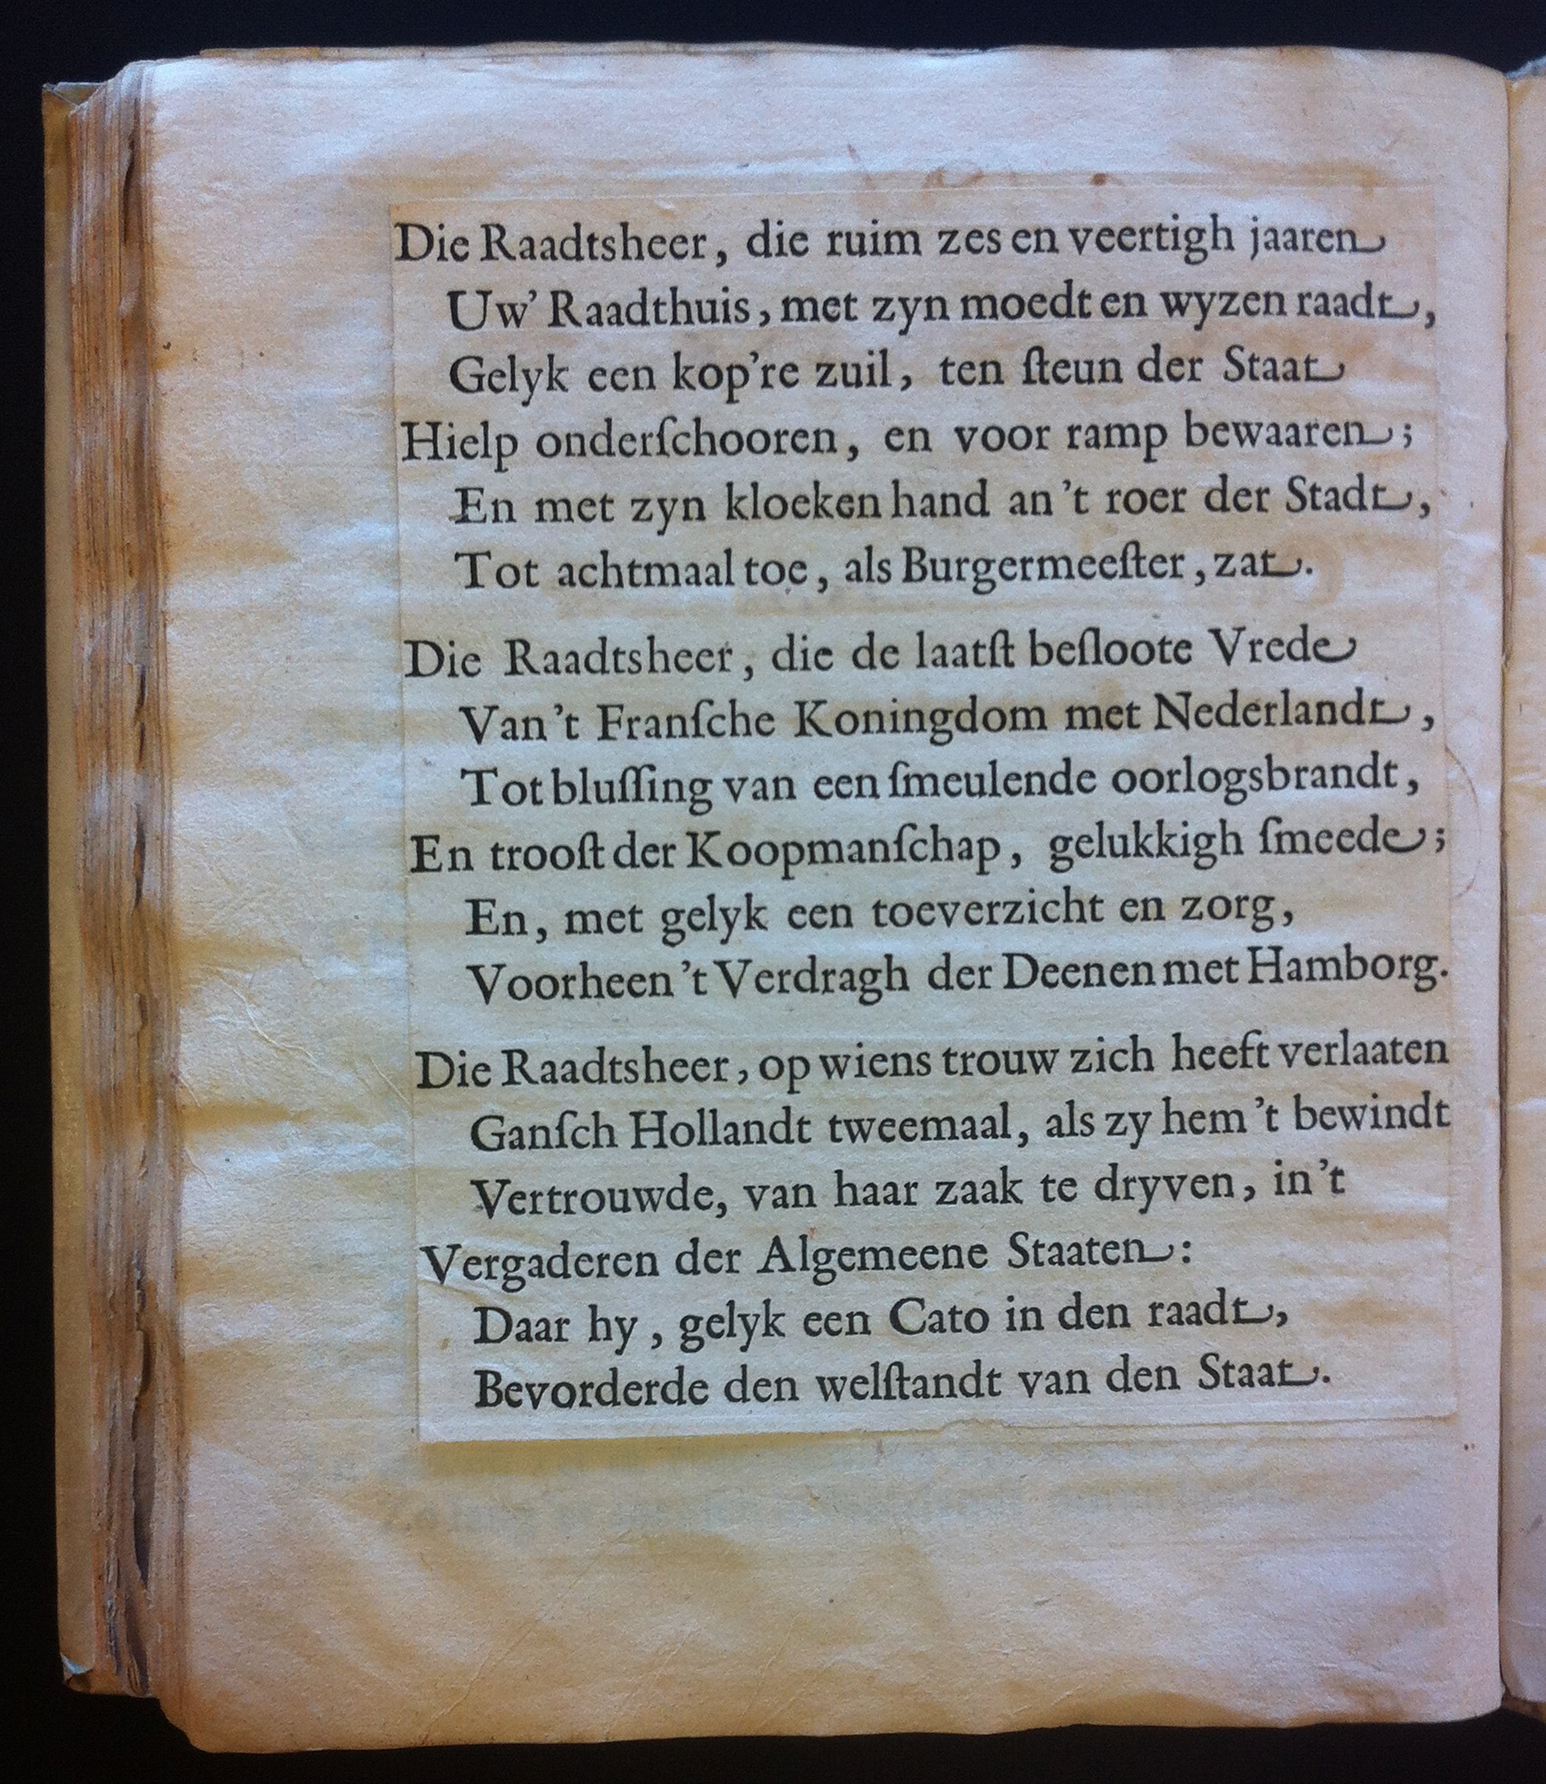 Die Raadtsheer, die ruim zes en veertigh jaaren
Uw' Raadthuis, met zyn moedt en wyzen raadt,
Gelyk een kop're zuil, ten ſteun der Staat
Hielp onderſchooren, en voor ramp bewaaren;
En met zyn kloeken hand an 't roer der Stadt,
Tot achtmaal toe, als Burgermeeſter, zat.
Die Raadtsheer, die de laatſt beſloote Vrede
Van 't Franſche Koningdom met Nederlandt,
Tot bluſſing van een ſmeulende oorlogsbrandt,
En trooſt der Koopmanſchap, gelukkigh ſmeede;
En, met gelyk een toeverzicht en zorg,
Voorheen 't Verdragh der Deenen met Hamborg.
Die Raadtsheer, op wiens trouw zich heeft verlaaten
Ganſch Hollandt tweemaal, als zy hem 't bewindt
Vertrouwde, van haar zaak te dryven, in 't
Vergaderen der Algemeene Staaten:
Daar hy, gelyk een Cato in den raadt,
Bevorderde den welſtandt van den Staat.